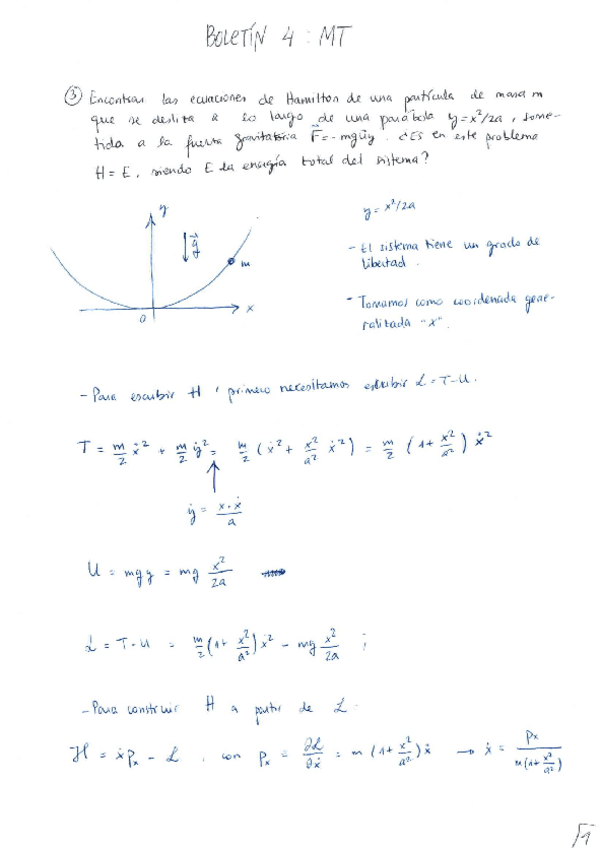 BOLETÍN 4 : MT
③ Encontrar las ecuaciones de Hamilton de una partícula de masa m
que se desliza a lo largo de una parábola y=x²/2a, some-
tida a la fuerza gravitatoria F⃗=-mgūy. ¿Es en este problema
H=E, siendo E la energía total del sistema?
y
g⃗
m
0
x
y = x²/2a
- El sistema tiene un grado de
libertad.
- Tomamos como coordenada gene-
ralizada "x".
- Para escribir H, primero necesitamos escribir L=T-U.
T = m/2 ẋ² + m/2 ẏ² = m/2 (ẋ² + x²/a² ẋ²) = m/2 (1+ x²/a²) ẋ²
ẏ = x·ẋ/a
U = mgy = mg x²/2a
L = T-U = m/2 (1+ x²/a²) ẋ² - mg x²/2a ;
- Para construir H a partir de L.
H = ẋpₓ - L , con pₓ = ∂L/∂ẋ = m (1+ x²/a²) ẋ → ẋ = pₓ/m(1+ x²/a²)
1